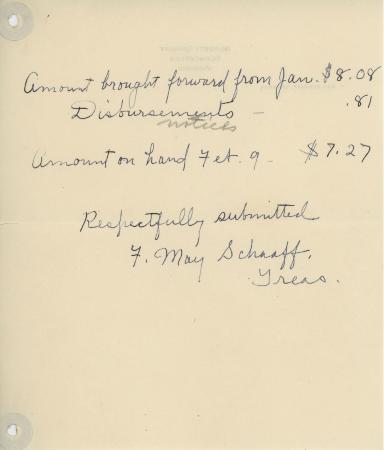 Amount brought forward from Jan. $8.08
Disbursements - .81
notices
Amount on hand Feb. 9 - $7.27
Respectfully submitted
F. May Schaaff,
Treas.